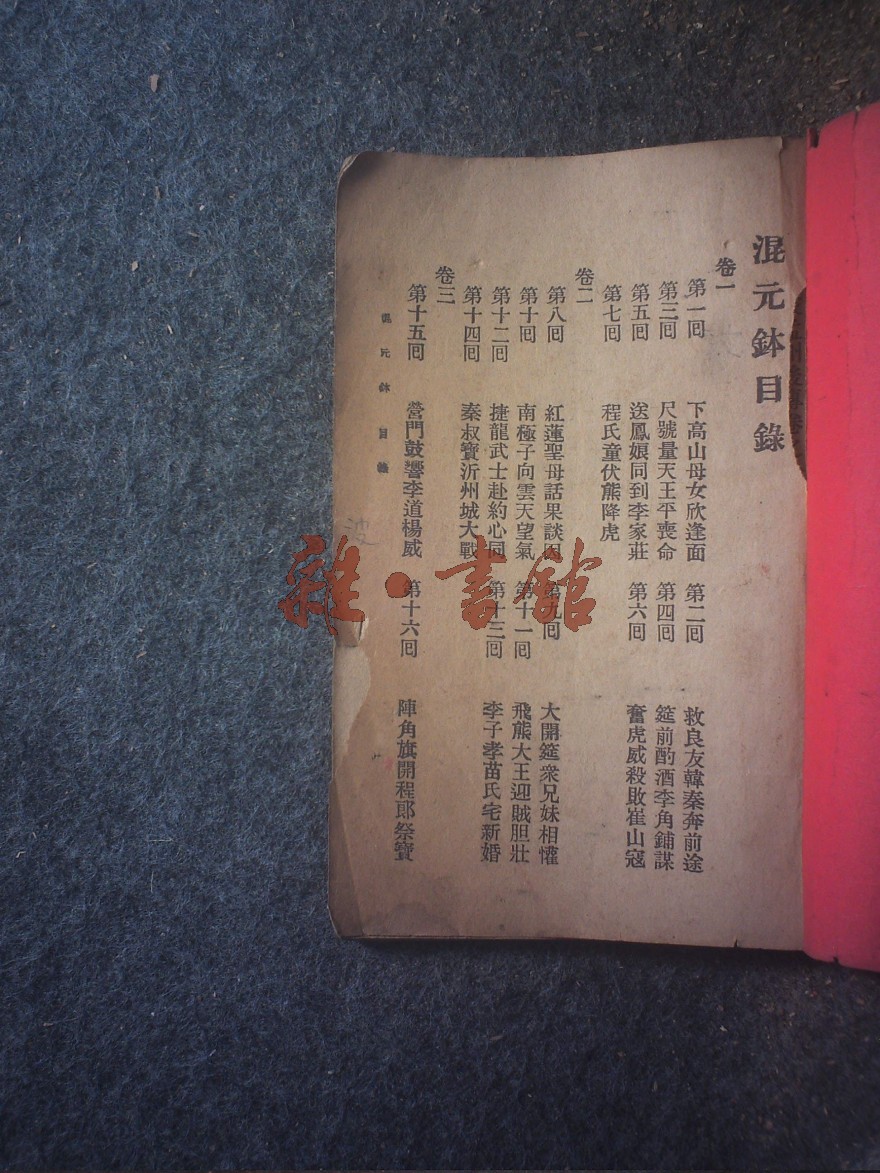 混元鉢目錄
卷一
第一囘 下高山母女欣逢面 第二囘 救良友韓秦奔前途
第三囘 尺號量天王平喪命 第四囘 筵前酌酒李角鋪謀
第五囘 送鳳娘同到李家莊 第六囘 奮虎威殺敗崔山寇
第七囘 程氏童伏熊降虎
卷二
第八囘 紅蓮聖母話果談因 第九囘 大開筵衆兄妹相懽
第十囘 南極子向雲天望氣 第十一囘 飛熊大王迎賊胆壯
第十二囘 捷龍武士赴約心同 第十三囘 李子孝苗氏宅新婚
第十四囘 秦叔寶沂州城大戰
卷三
第十五囘 營門鼓響李道楊威 第十六囘 陣角旗開程郎祭寶
混元鉢 目錄
雜·書館